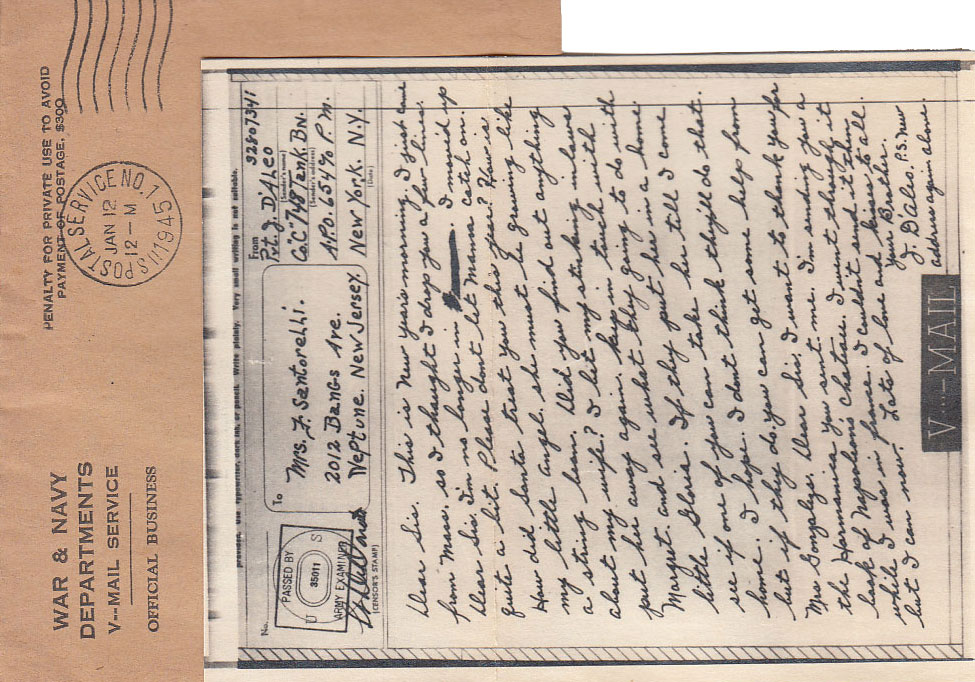 WAR & NAVY
DEPARTMENTS
V---MAIL SERVICE
OFFICIAL BUSINESS
PENALTY FOR PRIVATE USE TO AVOID
PAYMENT OF POSTAGE, $300
U.S. POSTAL SERVICE NO. 1
JAN 12
12 - M
1945
provided. Use typewriter, dark ink, or pencil. Write plainly. Very small writing is not suitable.
No.
PASSED BY
U S
35011
ARMY EXAMINER
(CENSOR'S STAMP)
To
Mrs. F. Santorelli.
2012 Bangs Ave.
Neptune. New Jersey.
From
Pvt. J. D'Aleo 32801341
(Sender's name)
Co."C" 748 Tank. BN.
(Sender's address)
A.P.O. 654 % P.M.
New York. N.Y.
(Date)
Dear Sis. This is New Year's morning. I just came
from Mass. so I thought I drop you a few lines.
Dear Sis I'm no longer in I moved up
quite a bit. Please dont let Mama catch on.
How did Santa treat you this year? How is
my little angel. she must be growing like
a string bean. Did you find out anything
about my wife? I bet my stinking in-laws
put her away again. keep in touch with
Marget. and see what they going to do with
little Gloria. If they put her in a home
see if one of you can take her till I come
home. I hope. I dont think they'll do that.
but if they do you can get some help from
Mrs Gonzales. Dear Sis. I want to thank you for
the Harmonica you sent me. I'm sending you a
book of Napoleons Chateau. I went though it
while I was in france. I couldn't send it then
but I can now. Lots of love and kisses to all.
Your Brother.
J. D'Aleo. P.S. New
address again above
V---MAIL